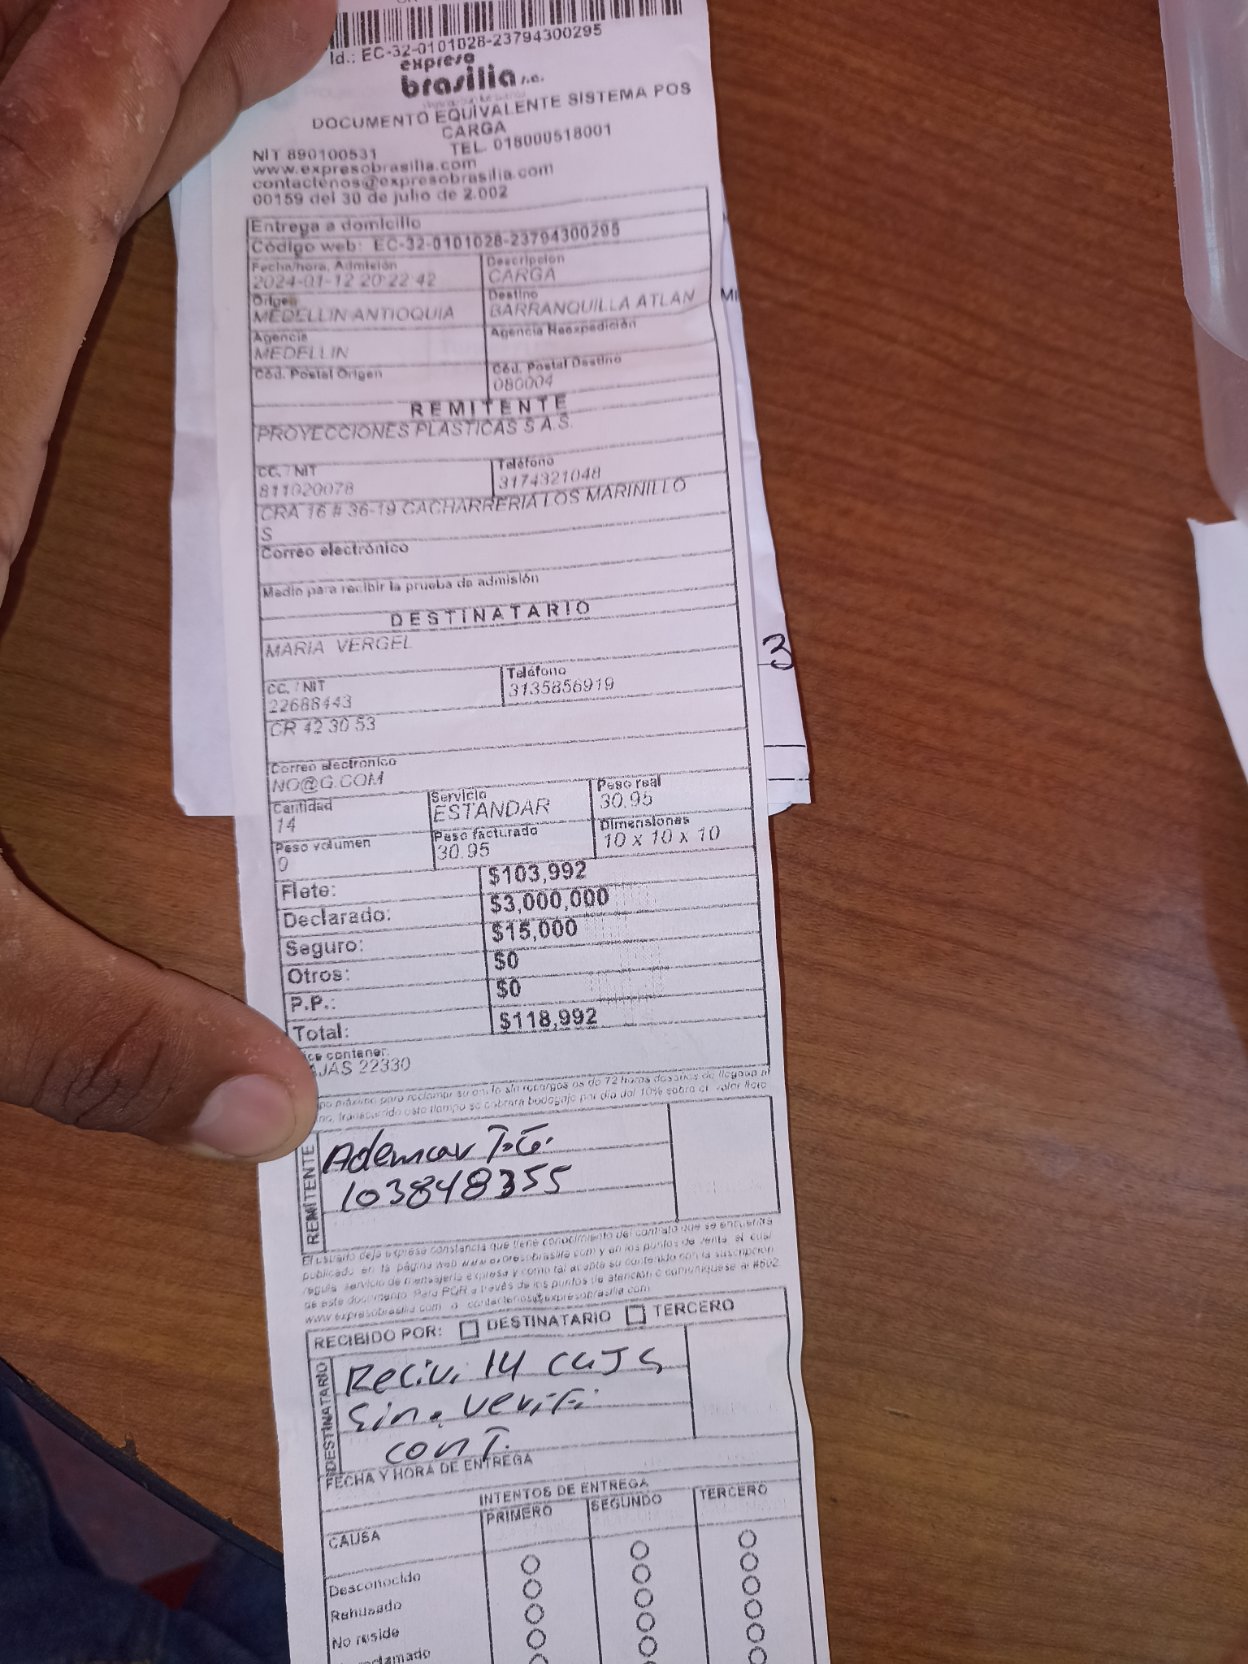 Id.: EC-32-0101028-23794300295
expreso
brasilia s.a.
DOCUMENTO EQUIVALENTE SISTEMA POS
CARGA
NIT 890100531 TEL. 018000518001
www.expresobrasilia.com
contactenos@expresobrasilia.com
00159 del 30 de julio de 2.002
Entrega a domicilio
Código web: EC-32-0101028-23794300295
Fecha/hora. Admisión Descripción
2024-01-12 20:22:42 CARGA
Origen Destino
MEDELLIN ANTIOQUIA BARRANQUILLA ATLAN
Agencia Agencia Reexpedición
MEDELLIN
Cód. Postal Origen Cód. Postal Destino
080004
REMITENTE
PROYECCIONES PLASTICAS S.A.S.
CC. / NIT Teléfono
811020078 3174321048
CRA 16 # 36-19 CACHARRERIA LOS MARINILLO
S
Correo electrónico
Medio para recibir la prueba de admisión
DESTINATARIO
MARIA VERGEL
CC. / NIT Teléfono
22688443 3135856919
CR 42 30 53
Correo electronico
NO@G.COM
Cantidad Servicio Peso real
14 ESTANDAR 30.95
Peso volumen Peso facturado Dimensiones
0 30.95 10 x 10 x 10
Flete: $103,992
Declarado: $3,000,000
Seguro: $15,000
Otros: $0
P.P.: $0
Total: $118,992
ice contener:
AJAS 22330
po máximo para reclamar su envío sin recargos es de 72 horas después de llegado al
no, transcurrido este tiempo se cobrará bodegaje por día del 10% sobre el valor flete
REMITENTE
Ademar T.G.
103848355
El usuario deja expresa constancia que tiene conocimiento del contrato que se encuentra
publicado en la página web www.expresobrasilia.com y en los puntos de venta, el cual
regula servicio de mensajería expresa y como tal acepta su contenido con la suscripción
de este documento. Para PQR a través de los puntos de atención o comuníquese al #502.
www.expresobrasilia.com o contactenos@expresobrasilia.com
RECIBIDO POR: DESTINATARIO TERCERO
DESTINATARIO
Recivi 14 cajs
sin. verifi.
conT.
FECHA Y HORA DE ENTREGA
INTENTOS DE ENTREGA
CAUSA PRIMERO SEGUNDO TERCERO
Desconocido
Rehusado
No reside
clamado
3